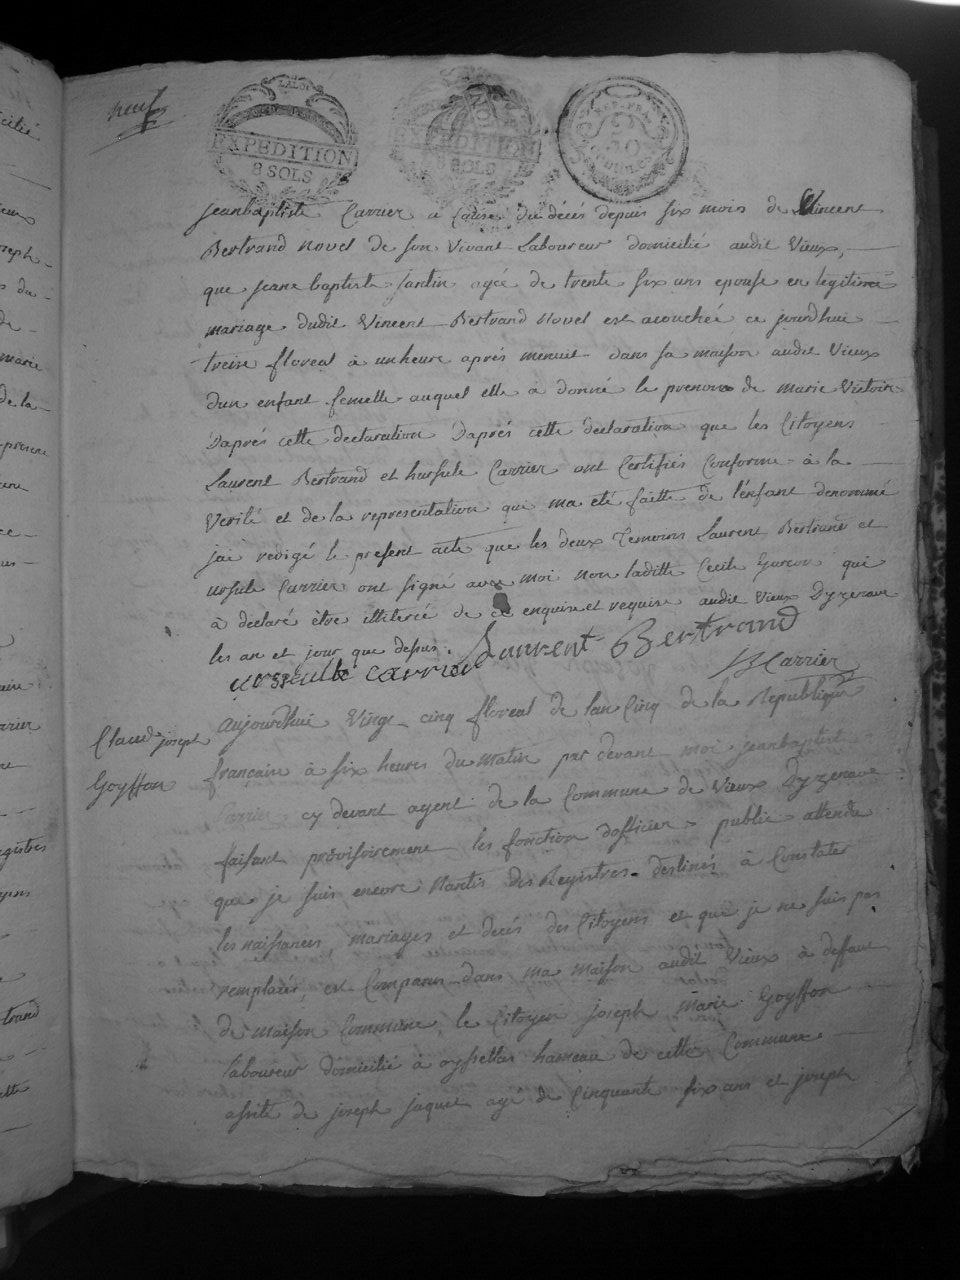 neuf
EXPEDITION
8 SOLS
EXPEDITION
8 SOLS
REP. FRA.
jeanbaptiste Carrier a Cause du décés depuis six mois de Vincent
Bertrand Novel de son vivant Laboureur domicilié audit Vieux,
que jeane baptiste jantin agée de trente six ans epouse en legitime
mariage dudit Vincent Bertrand Novel est acouchée ce jourdhui
treize floreal à unheure aprés menuit dans sa maison audit Vieux
dun enfant femelle auquel elle à donné le prenom de marie Victoire
Daprés cette declaration Daprés cette declaration que les Citoyens
Laurent Bertrand et hursule Carrier ont Certifiés Conforme à la
Verité et de la representation qui ma eté faitte de l'enfant denommé
jai redigé le present acte que les deux Temoins Laurent Bertrand et
ursule Carrier ont signé avec moi non laditte Cecile Garcon qui
à declaré être illiterée de ce enquise et requise audit Vieux Dyzenave
les an et jour que dessus.
Laurent Bertrand
ursulle carrier
JBCarrier
Claude joseph
Goyffon
aujourdhui Vingt cinq floreal de lan Cinq de la Republique
française à six heures du matin par devant moi jeanbaptiste
Carrier cy devant agent de la Commune de Vieux Dyzenave
faisant provisoirement les fonction dofficier public attendu
que je suis encore Nantis des Registres destinés à Constater
les naissances mariages et decés des Citoyens et que je ne suis pas
remplacés, est Comparu dans ma maison audit Vieux à deffaut
de maison Commune, le Citoyen joseph marie Goyffon
laboureur domicilié à oysellas hameau de cette Commune
assité de joseph jaquet agé de Cinquante six ans et joseph